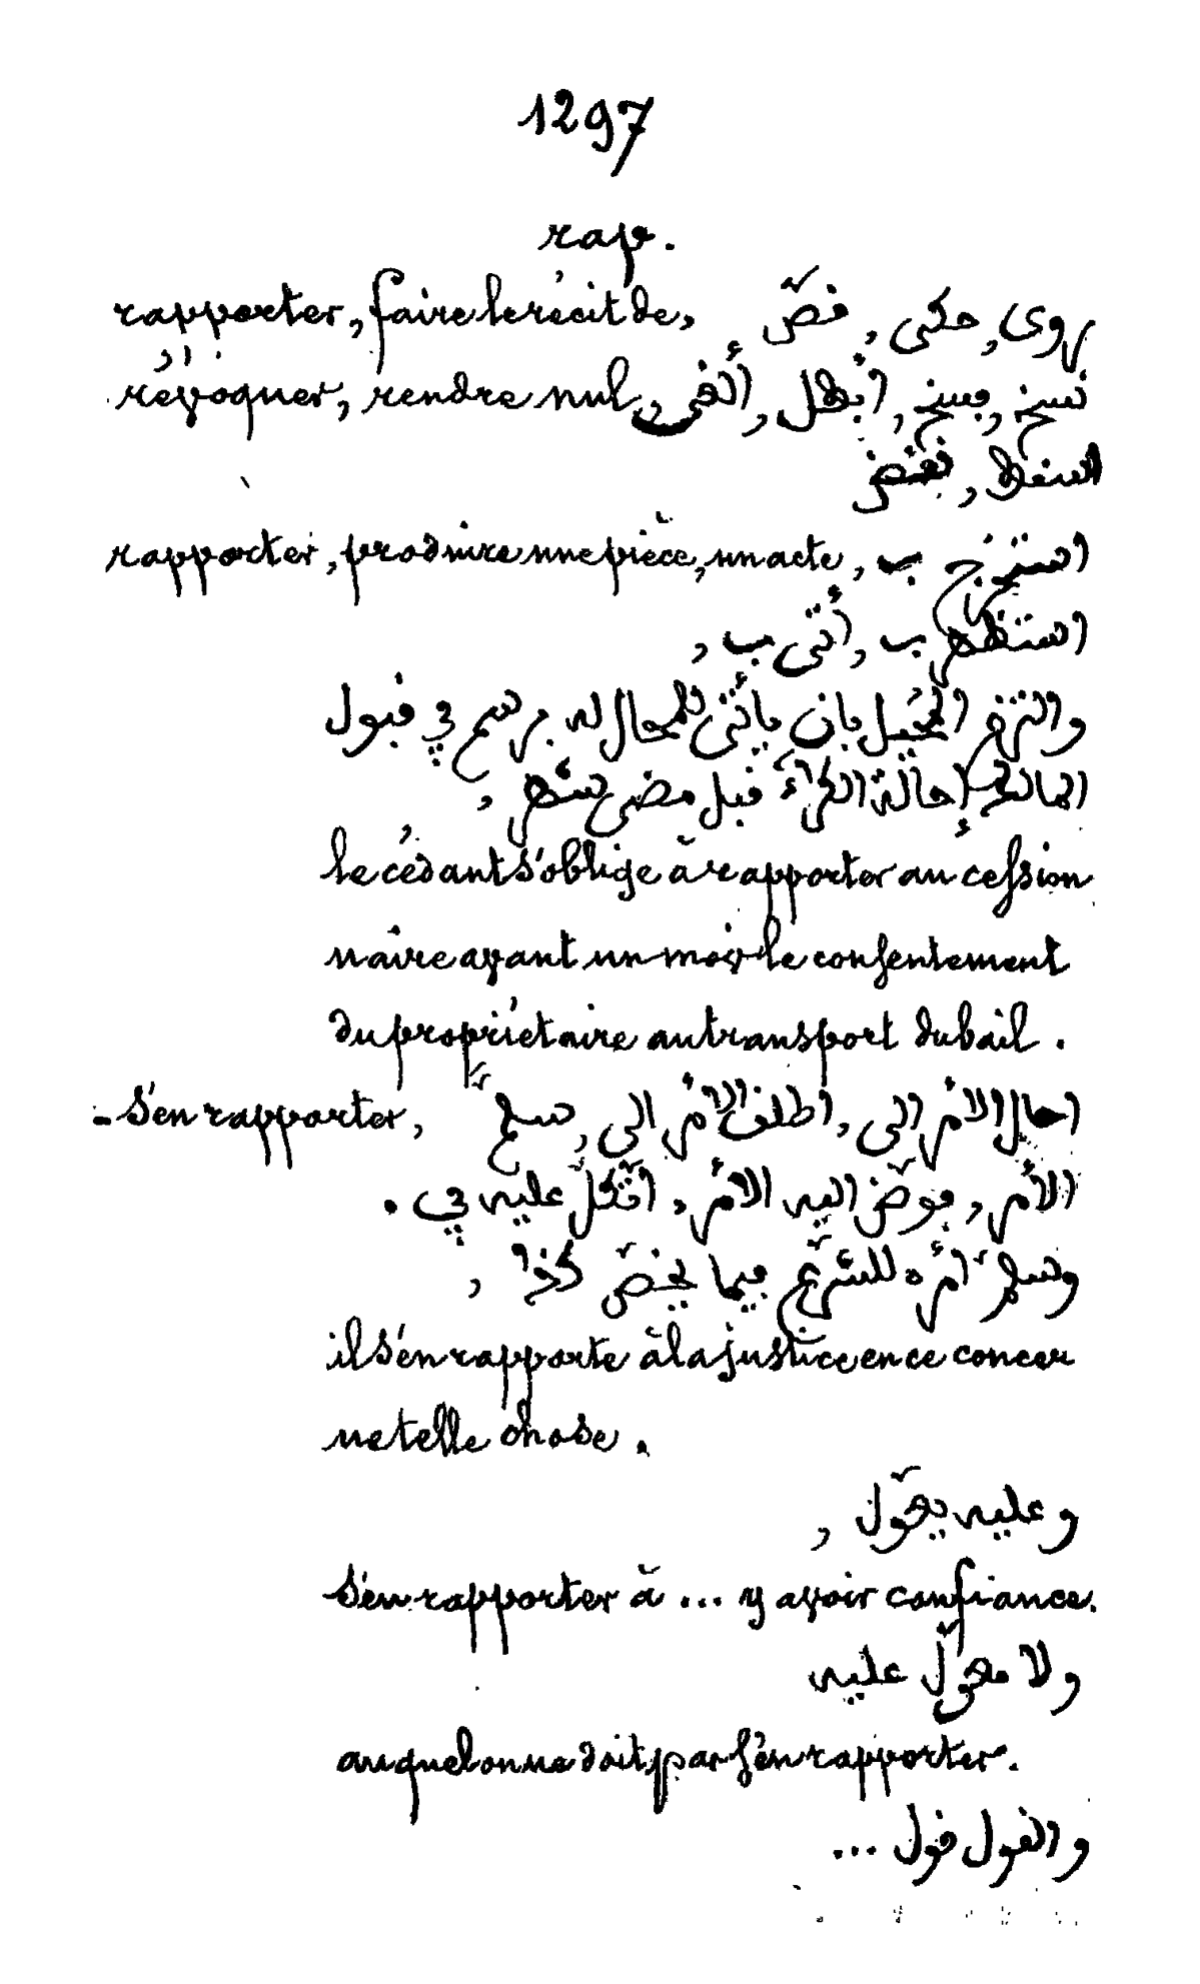 1297
rap.
rapporter, faire le récit de, روى, حكى, قصّ
révoquer, rendre nul, نسخ, فسخ, أبطل, ألغى,
نقض
rapporter, produire une pièce, un acte, استخرج ب
استظهر ب, أتى ب,
والتزم المحيل بان يأتى للمحال له برسم في قبول
المالك إحالة الكراء قبل مضى شهر,
le cédant s'oblige à rapporter au cession
naire avant un mois le consentement
du propriétaire au transport du bail.
- s'en rapporter, احال الامر الى, اطلق الامر الى, سلّم
الأمر, فوّض اليه الامر, اتّكل عليه في.
وسلّم أمره للشرع فيما يخصّ كذا,
il s'en rapporte à la justice en ce concer
ne telle chose.
وعليه يعوّل,
s'en rapporter à ... y avoir confiance.
ولا معوّل عليه
auquel on ne doit pas s'en rapporter.
والقول قول ...